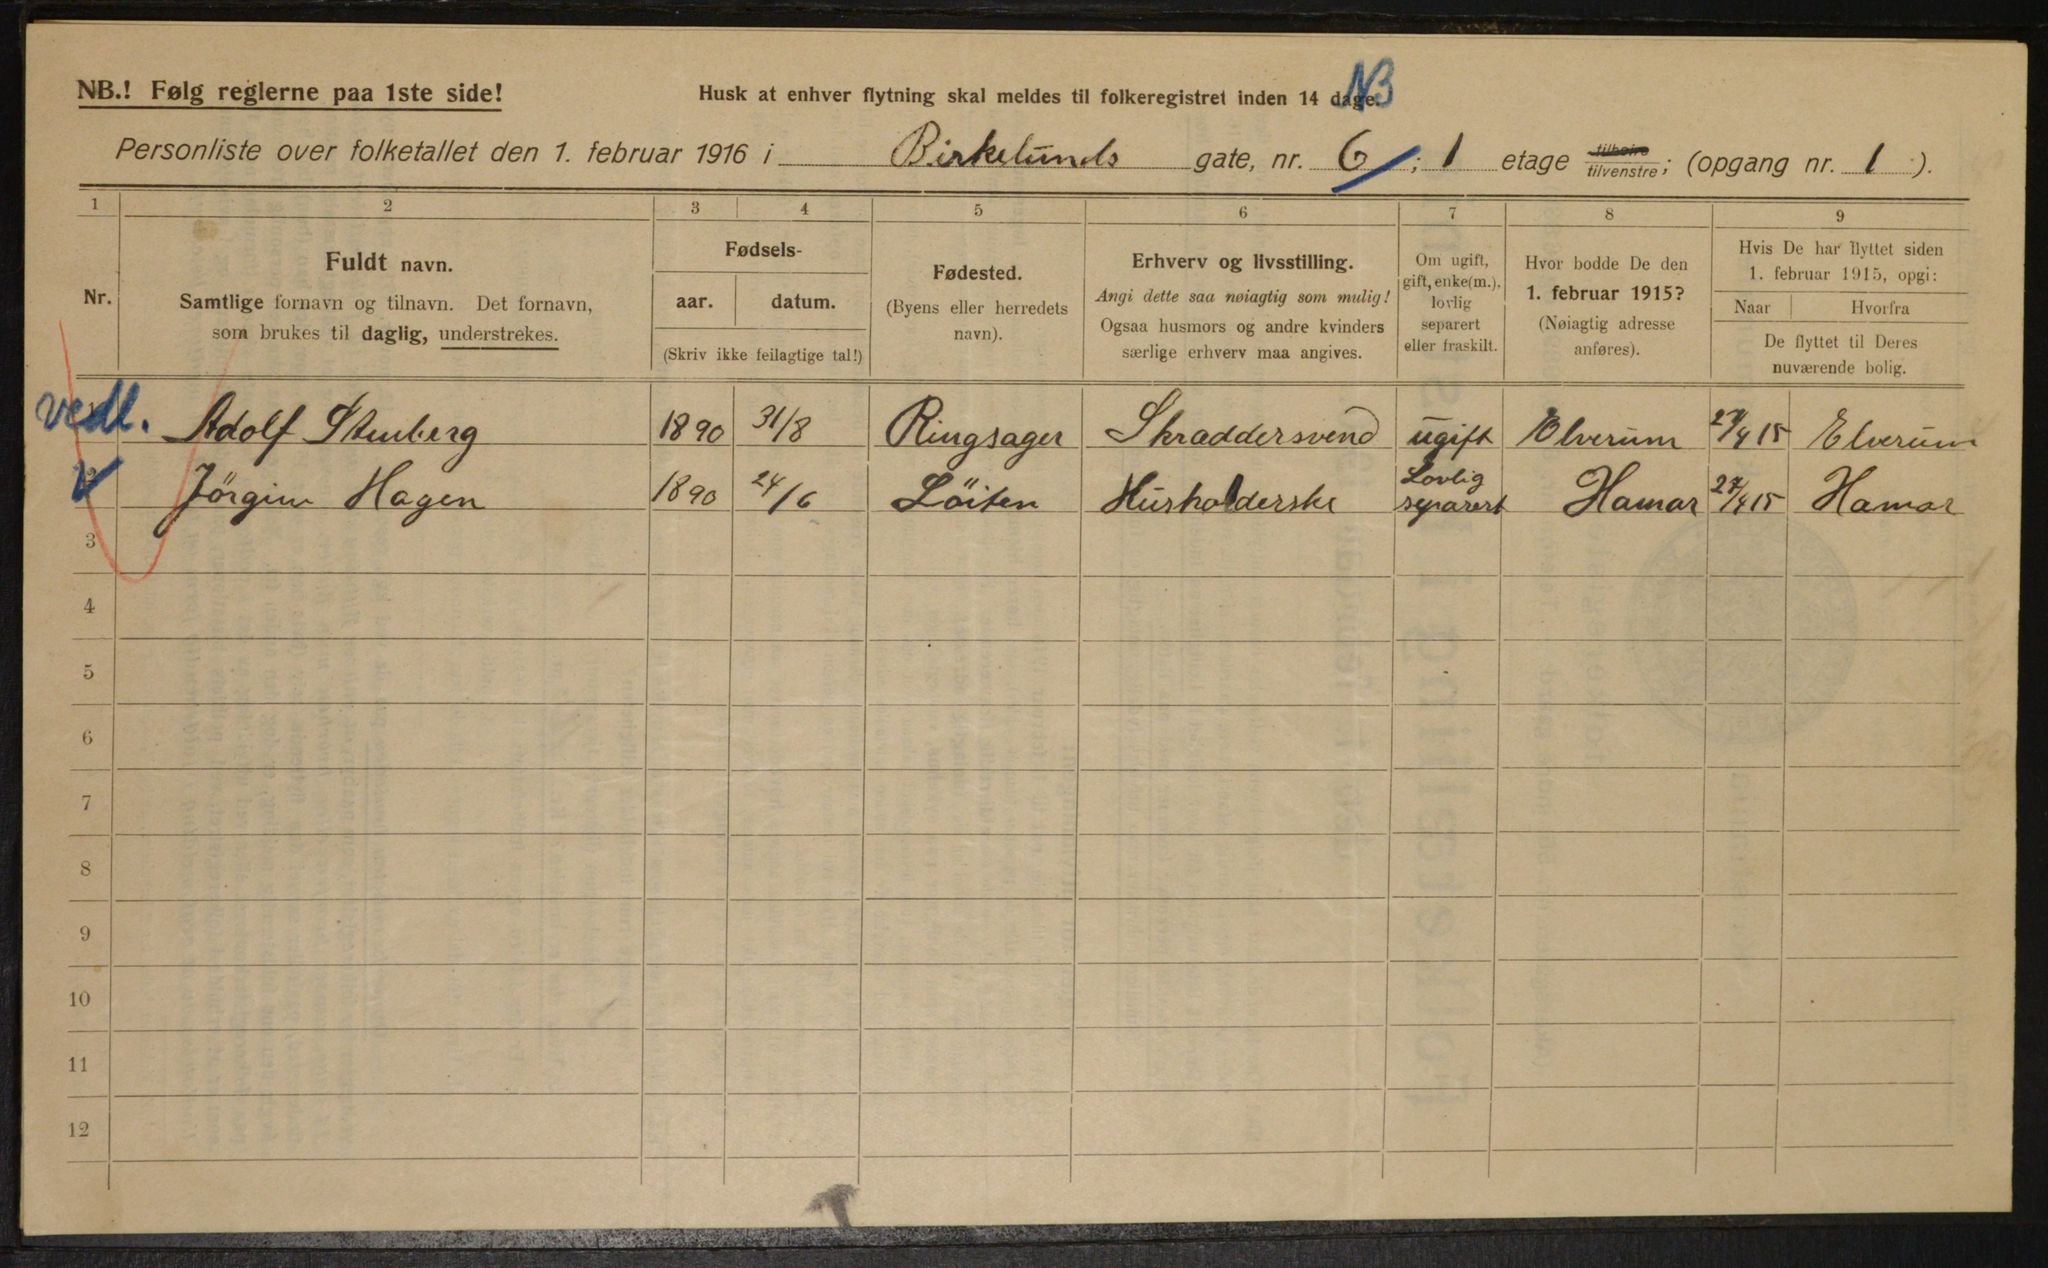 NB
NB.! Følg reglerne paa 1ste side! Husk at enhver flytning skal meldes til folkeregistret inden 14 dage.
Personliste over folketallet den 1. februar 1916 i Birkelunds gate, nr. 6; 1 etage tilhøire/tilvenstre; (opgang nr. 1).
1 2 3 4 5 6 7 8 9
Nr.
Fuldt navn.
Samtlige fornavn og tilnavn. Det fornavn,
som brukes til daglig, understrekes.
Fødsels-
aar. datum.
(Skriv ikke feilagtige tal!)
Fødested.
(Byens eller herredets
navn).
Erhverv og livsstilling.
Angi dette saa nøiagtig som mulig!
Ogsaa husmors og andre kvinders
særlige erhverv maa angives.
Om ugift,
gift, enke(m.),
lovlig
separert
eller fraskilt.
Hvor bodde De den
1. februar 1915?
(Nøiagtig adresse
anføres).
Hvis De har flyttet siden
1. februar 1915, opgi:
Naar Hvorfra
De flyttet til Deres
nuværende bolig.
vedl. Adolf Stenberg 1890 31/8 Ringsager Skraddersvend ugift Elverum 27/4 15 Elverum
Jörgine Hagen 1890 24/6 Löiten Husholderske Lovlig separert Hamar 27/4 15 Hamar
3
4
5
6
7
8
9
10
11
12